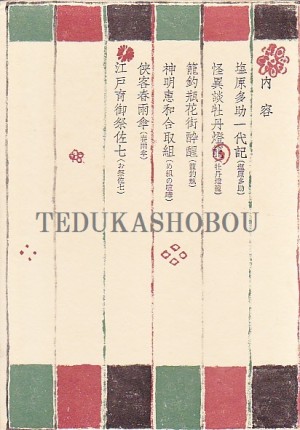 内容
塩原多助一代記(塩原多助)
怪異談牡丹燈籠(牡丹燈籠)
籠釣瓶花街酔醒(籠釣瓶)
神明恵和合取組(め組の喧嘩)
侠客春雨傘(春雨傘)
江戸育御祭佐七(お祭佐七)
TEDUKASHOBOU